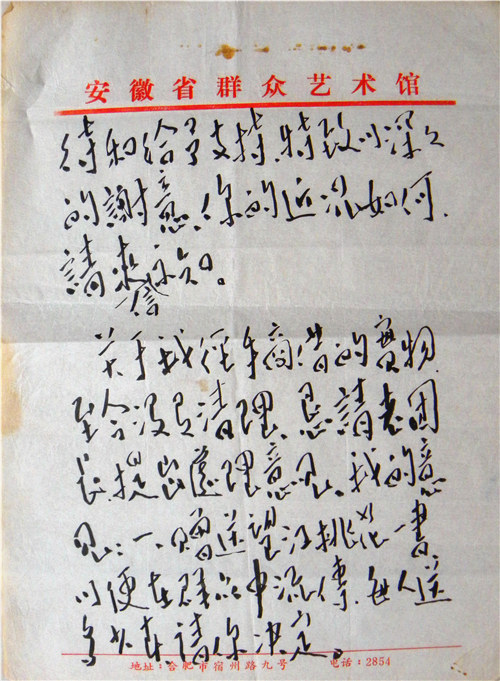 安徽省群众艺术馆
待和给了支持,特致以深々
的謝意,你的近况如何,
請來信示知。
关于我徑手商借的實物,
至今没有清理,恳請老团
长提出處理意见,我的意
见:一、贈送望江挑花一書
以便在群众中流傳,每人送
多少本請你决定。
地址:合肥市宿州路九号 电话:2854